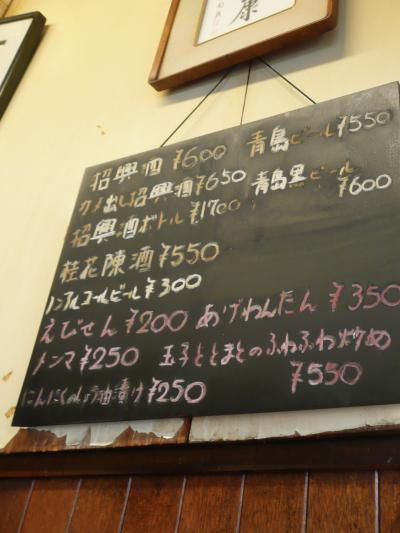 康
紹興酒 ¥600 青島ビール ¥550
カメ出し紹興酒 ¥650 青島黒ビール
紹興酒ボトル ¥1700 ¥600
桂花陳酒 ¥550
ノンアルコールビール ¥300
えびせん ¥200 あげわんたん ¥350
メンマ ¥250 玉子ととまとのふわふわ炒め
にんにくのしょう油漬け ¥250 ¥550